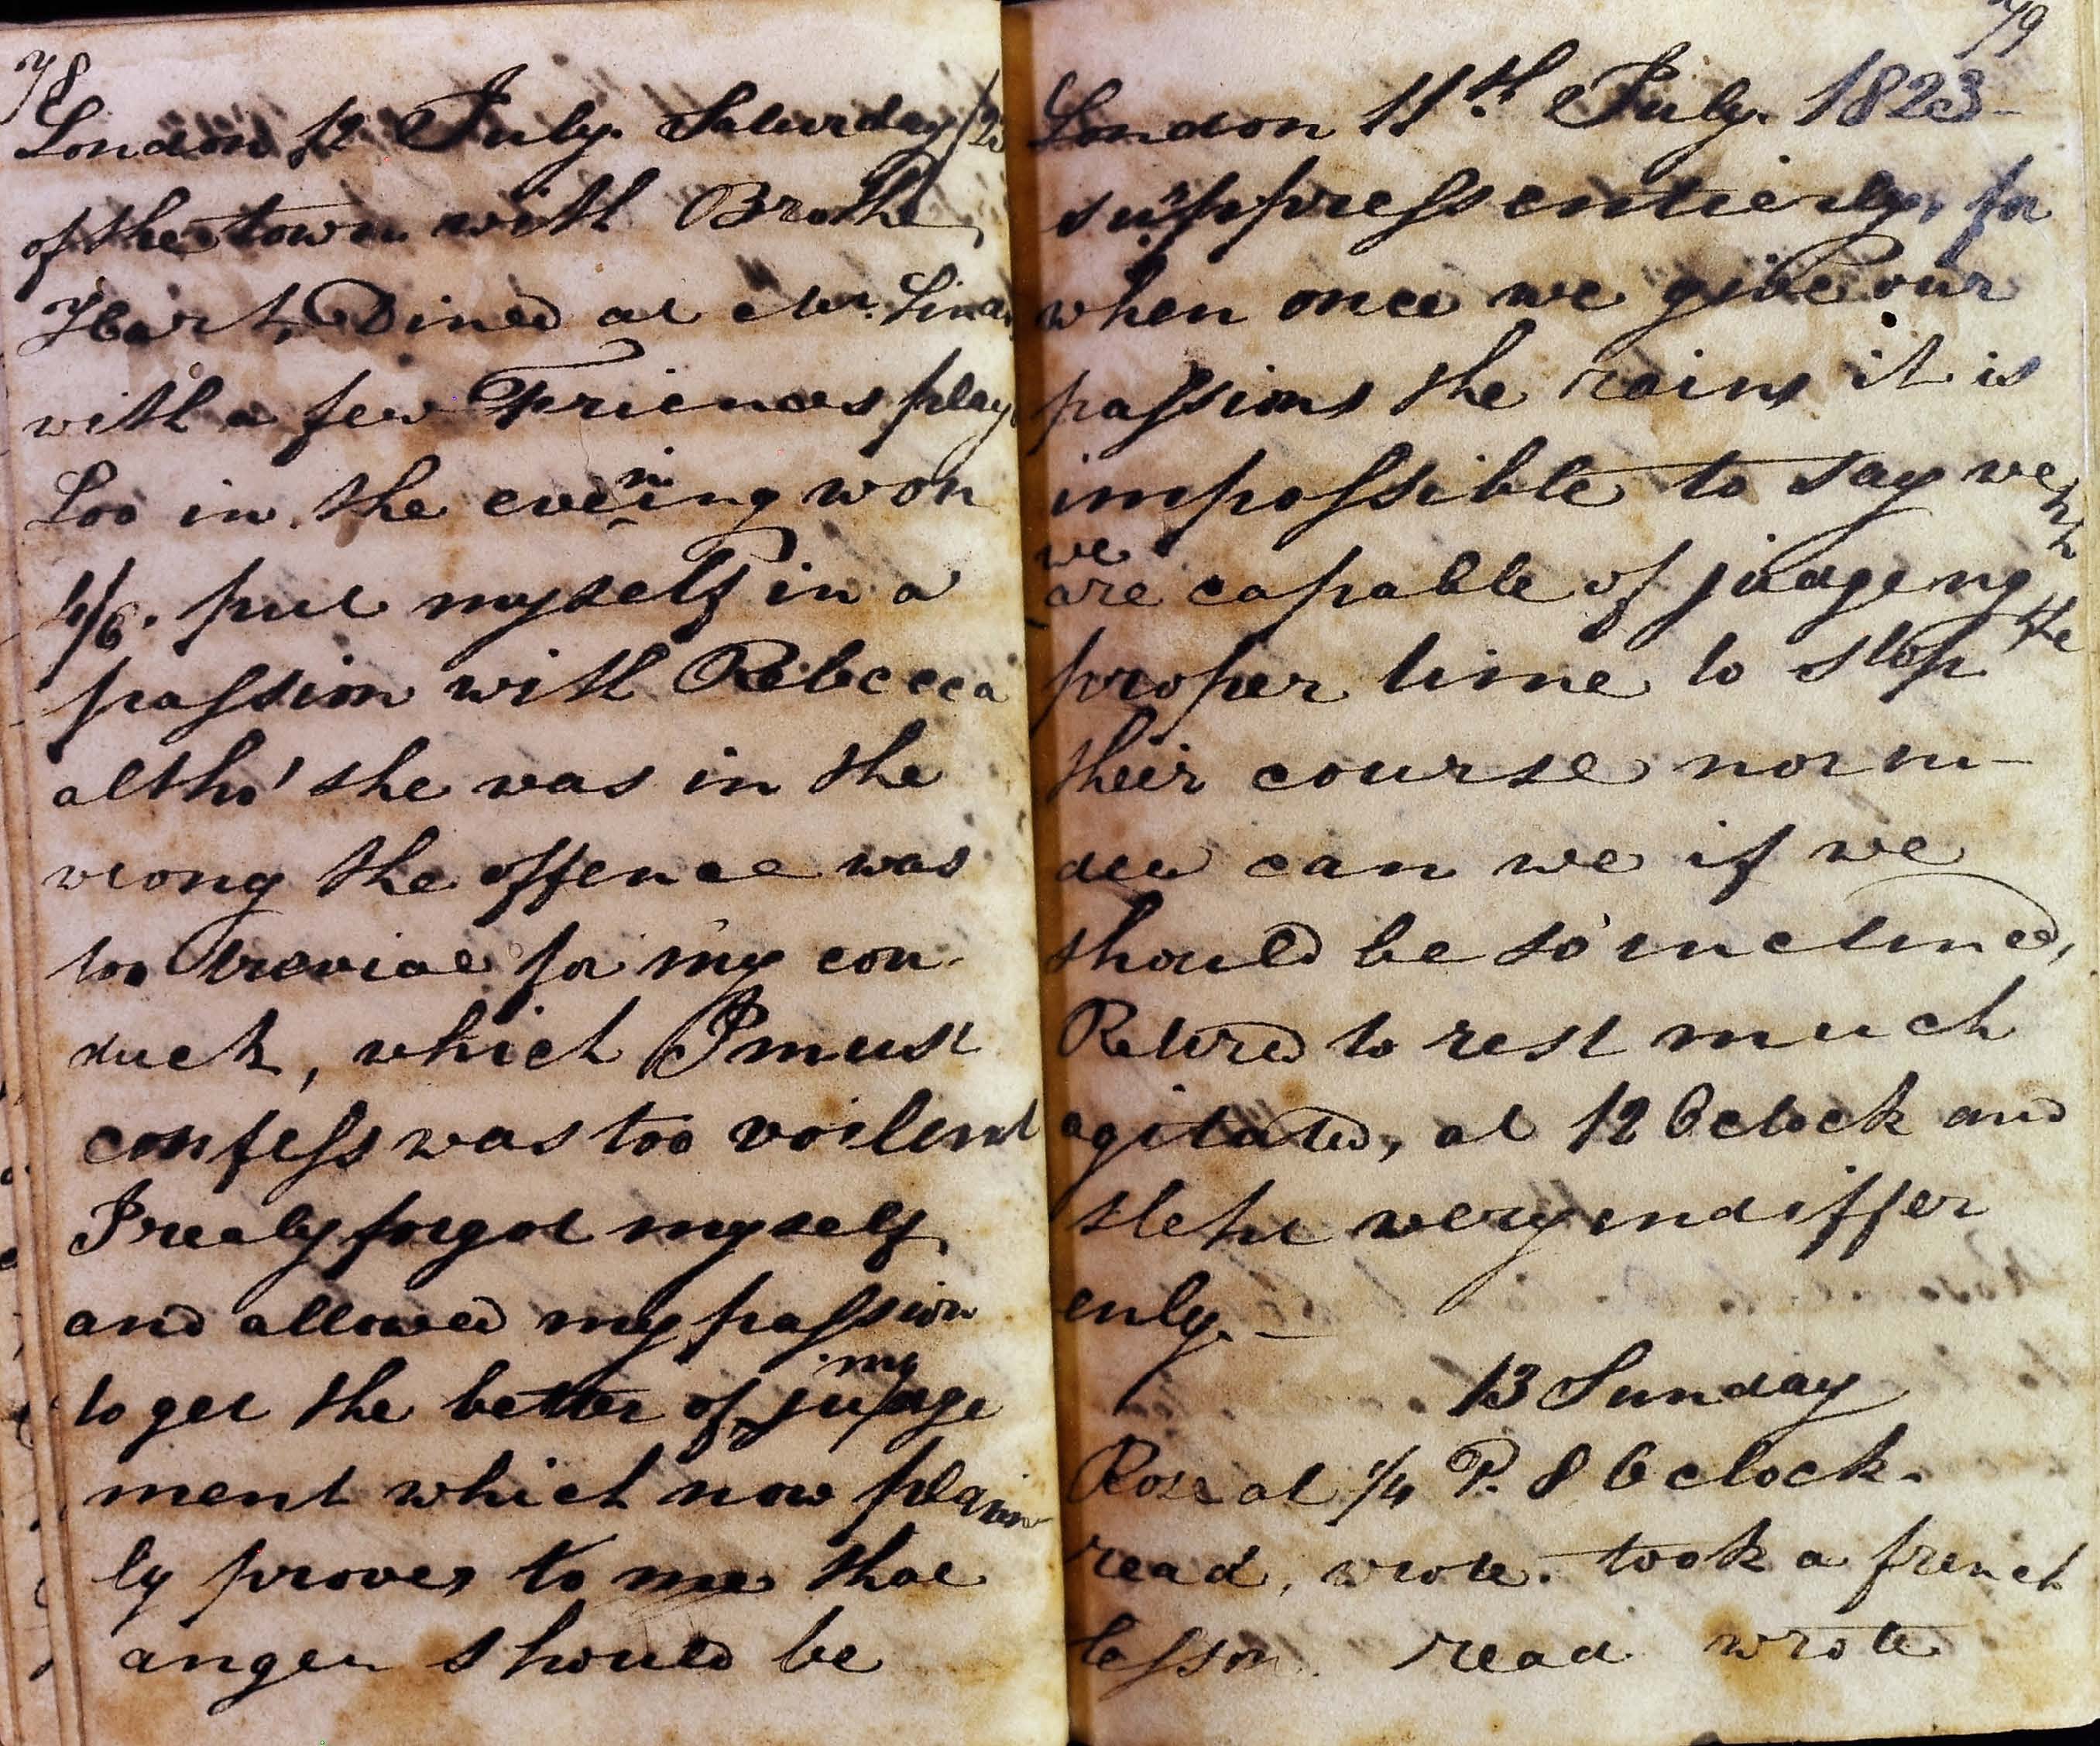 78
London 12 July. Saturday /23
of the town with Brothe
Hart, Dined at Mr. Lind
with a few Friends play
Loo in the evening won
4/6. put myself in a
passion with Rebecca
altho' she was in the
wrong the offence was
too trevial for my con-
duck, which I must
confess was too voilent
I realy forgot myself
and allowed my passion
to get the better of my judge
ment which now plain-
ly proves to me that
anger should be
79
London 11th July. 1823-
suppress entierly, for
when once we give our
passions the reins it is
impossible to say weht
we are capable of judgeng the
proper time to stop
their course nor in-
deed can we if we
should be so inclined,
Retired to rest much
agitated, at 12 Oclock and
slept very indiffer
enly. -
13 Sunday
Rose at 1/4 P. 8 Oclock.
read, wrote. took a french
lesson. read wrote